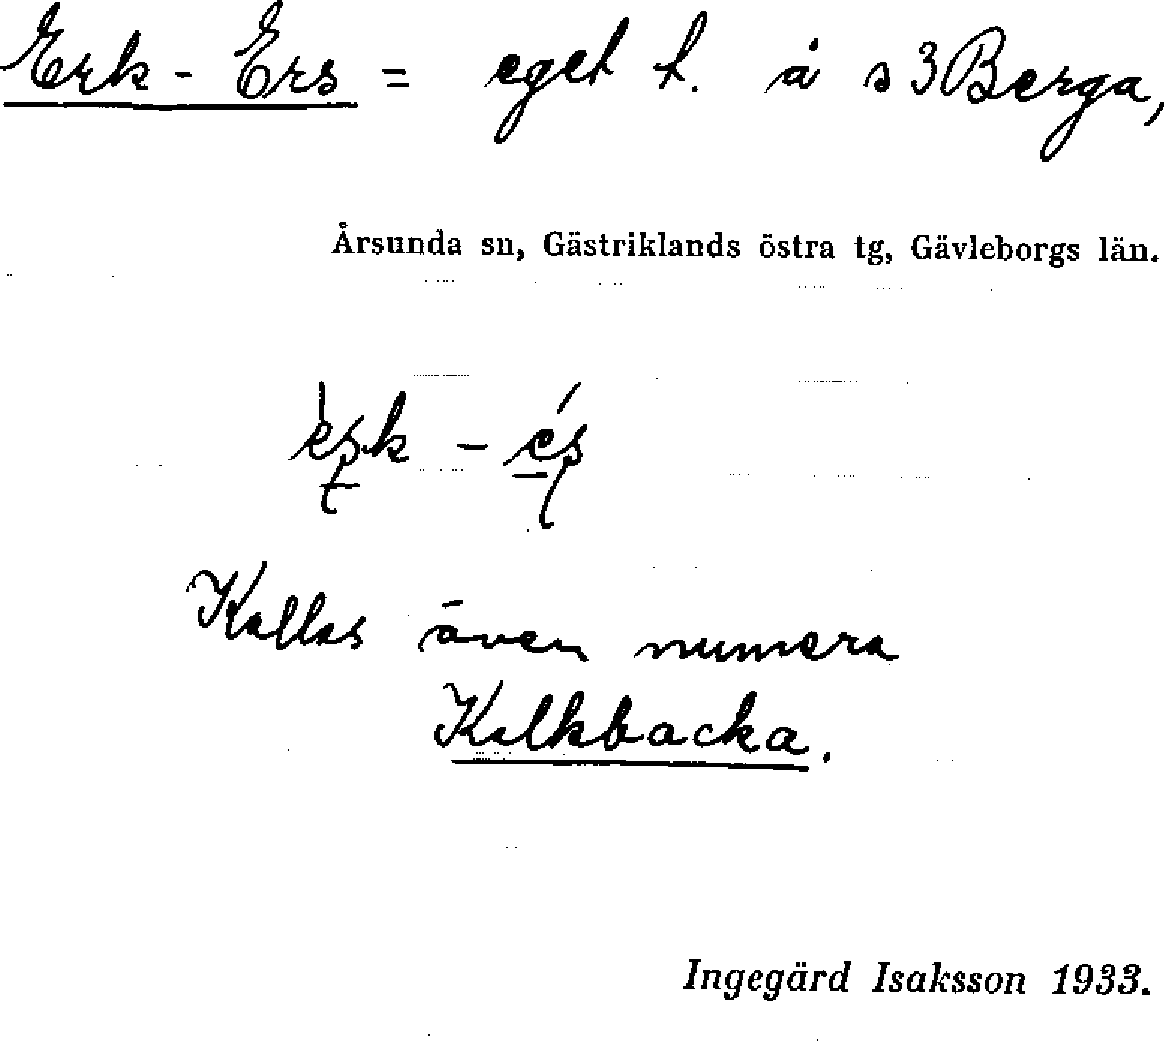 Erk-Ers = eget t. å s 3 Berga,
Årsunda sn, Gästriklands östra tg, Gävleborgs län.
Kallas även numera
Kalkbacka.
Ingegärd Isaksson 1933.